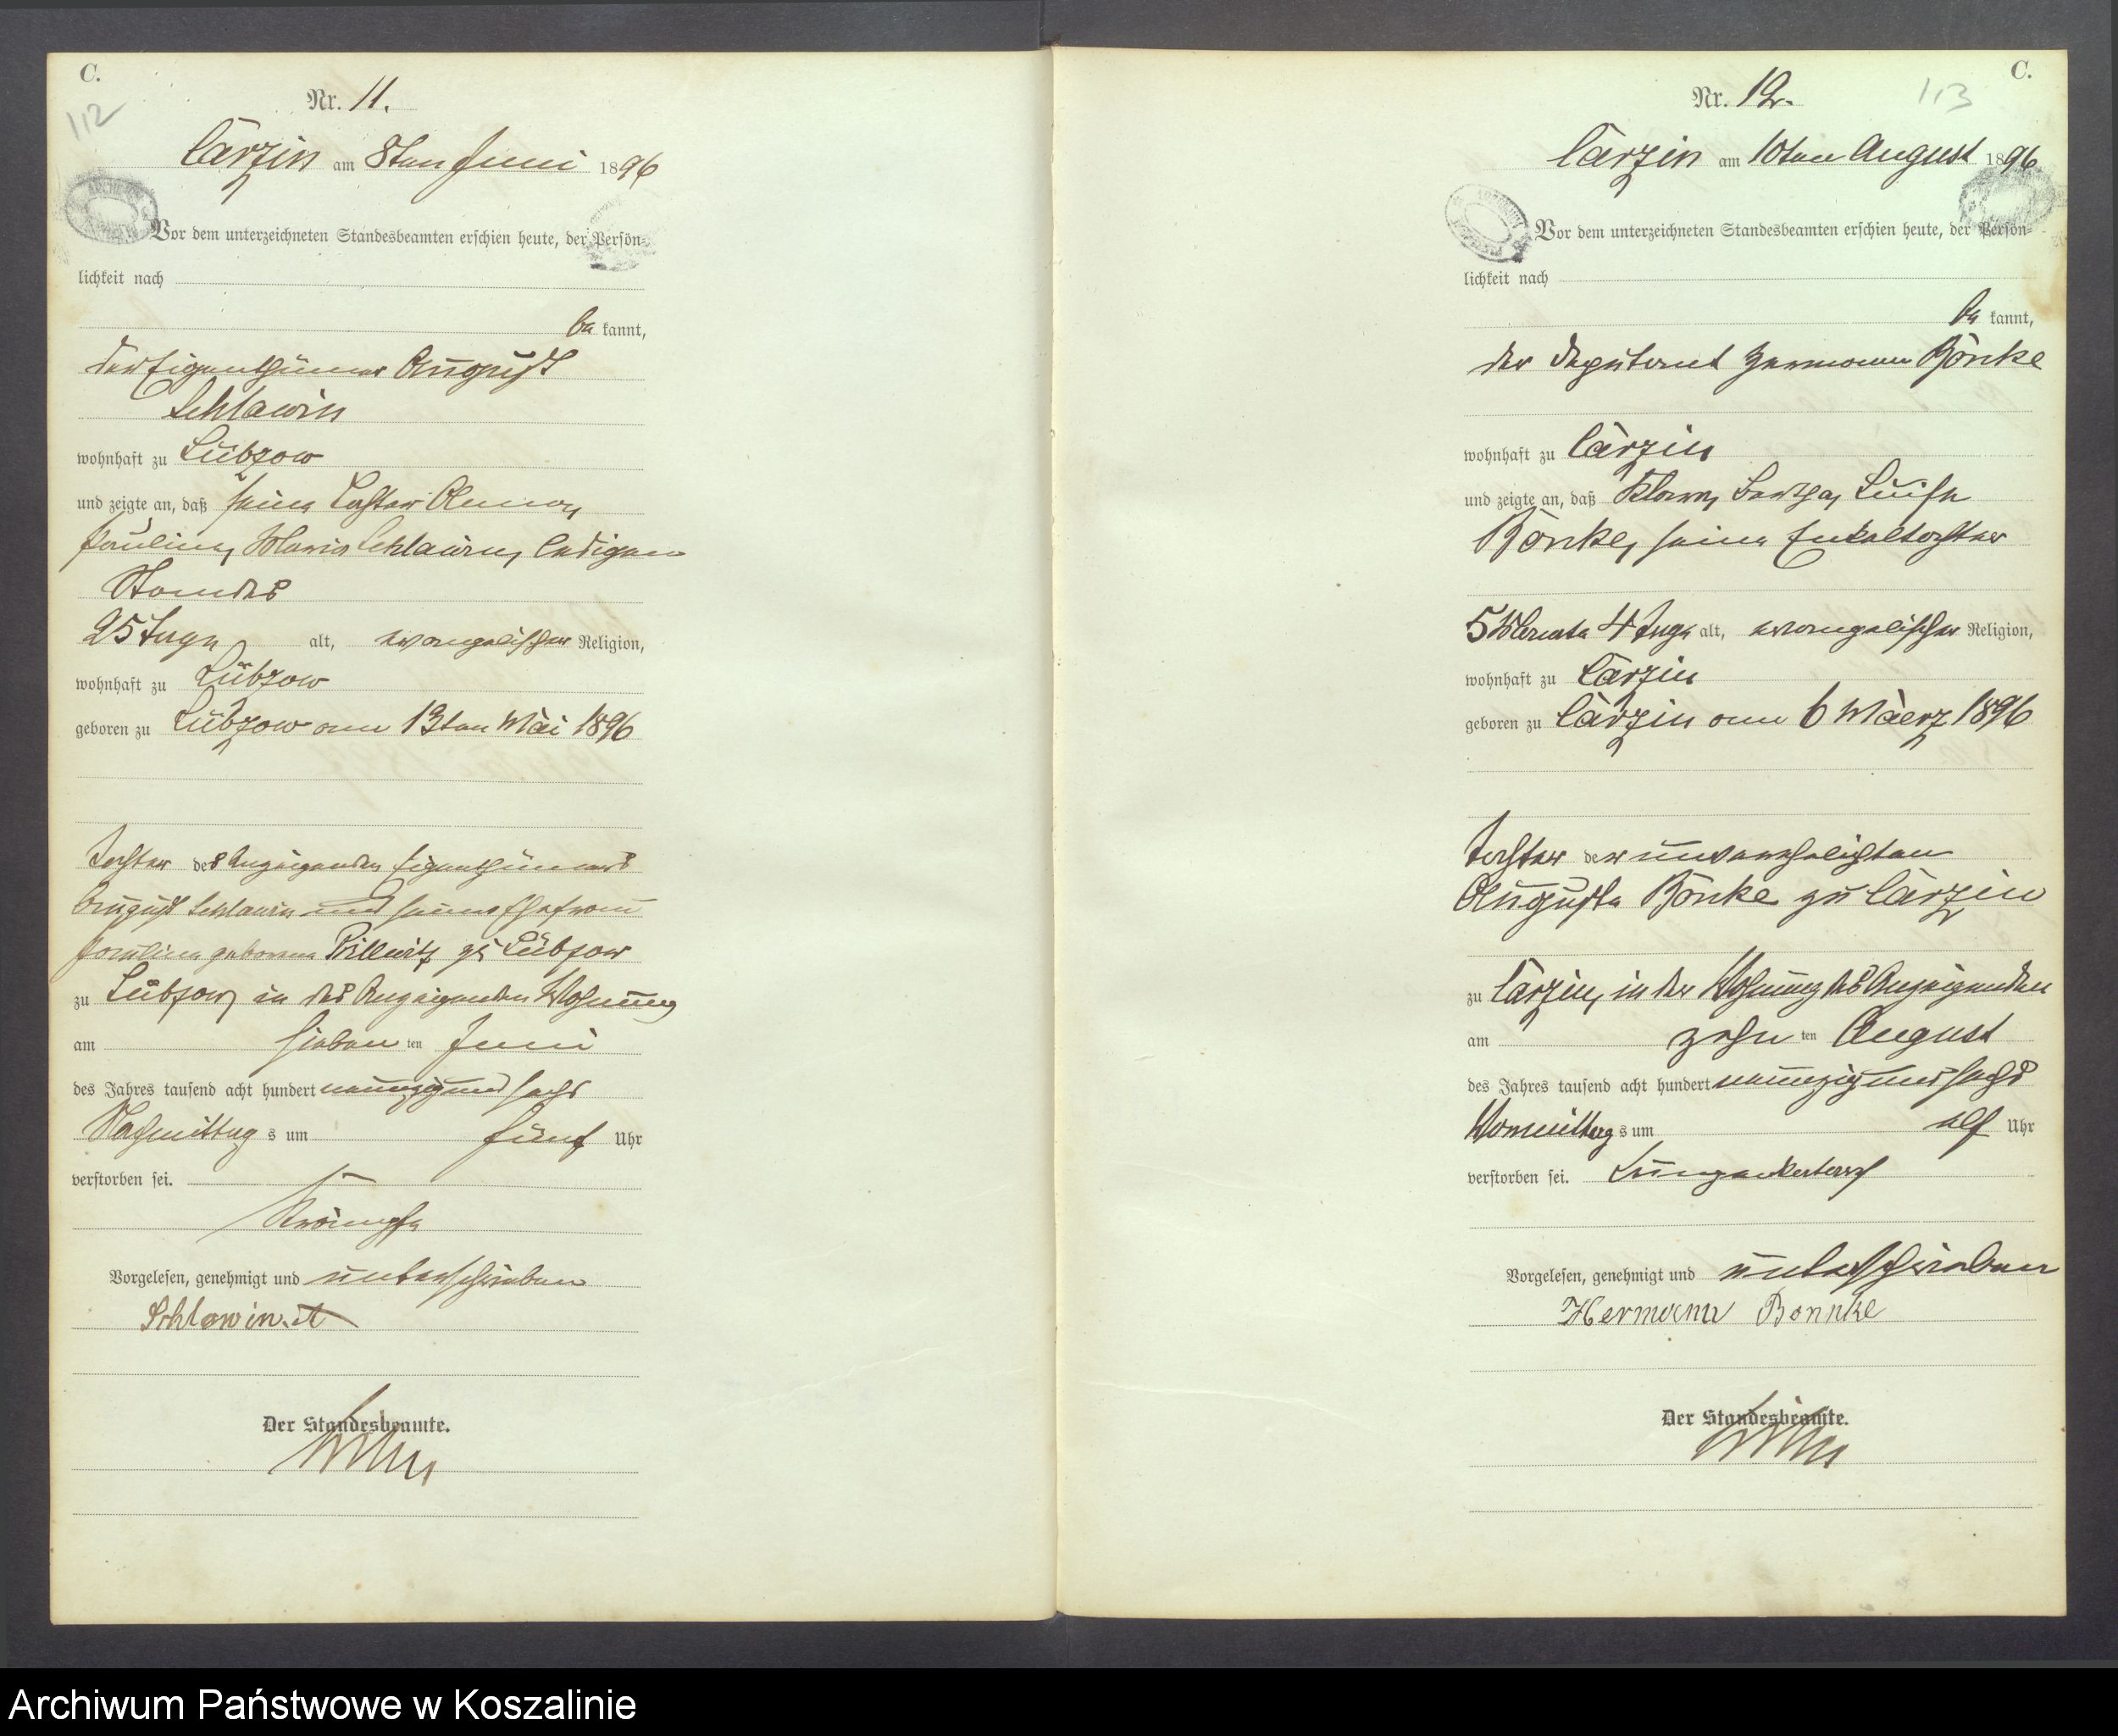 C.
112
Nr. 11.
Carzin am 8ten Juni 1896
Vor dem unterzeichneten Standesbeamten erschien heute, der Persön-
lichkeit nach
be kannt,
der Eigenthümer August
Schlawin
wohnhaft zu Lübzow
und zeigte an, daß seine Tochter Anna,
Pauline, Marie Schlawin, ledigen
Standes
25 Tage alt, evangelischer Religion,
wohnhaft zu Lübzow
geboren zu Lübzow am 13ten Mai 1896
Tochter des Anzeigenden Eigenthümers
August Schlawin und seiner Ehefrau
Pauline geborene Prillwitz zu Lübzow
zu Lübzow, in des Anzeigenden Wohnung
am sieben ten Juni
des Jahres tausend acht hundert neunzig und sechs
Nachmittag s um fünf Uhr
verstorben sei.
Krämpfe
Vorgelesen, genehmigt und unterschrieben
Schlawin. A
Der Standesbeamte.
C.
113
Nr. 12.
Carzin am 10ten August 1896
Vor dem unterzeichneten Standesbeamten erschien heute, der Persön-
lichkeit nach
be kannt,
der Deputant Hermann Bönke
wohnhaft zu Carzin
und zeigte an, daß Klara, Bertha, Luise
Bönke, seine Enkeltochter
5 Monate 4 Tage alt, evangelischer Religion,
wohnhaft zu Carzin
geboren zu Carzin am 6 Maerz 1896
Tochter der unverehelichten
Auguste Bönke zu Carzin
zu Carzin, in der Wohnung des Anzeigenden
am zehn ten August
des Jahres tausend acht hundert neunzig und sechs
Vormittag s um elf Uhr
verstorben sei. Lungenkatarrh
Vorgelesen, genehmigt und unterschrieben
Hermann Bonnke
Der Standesbeamte.
Archiwum Państwowe w Koszalinie